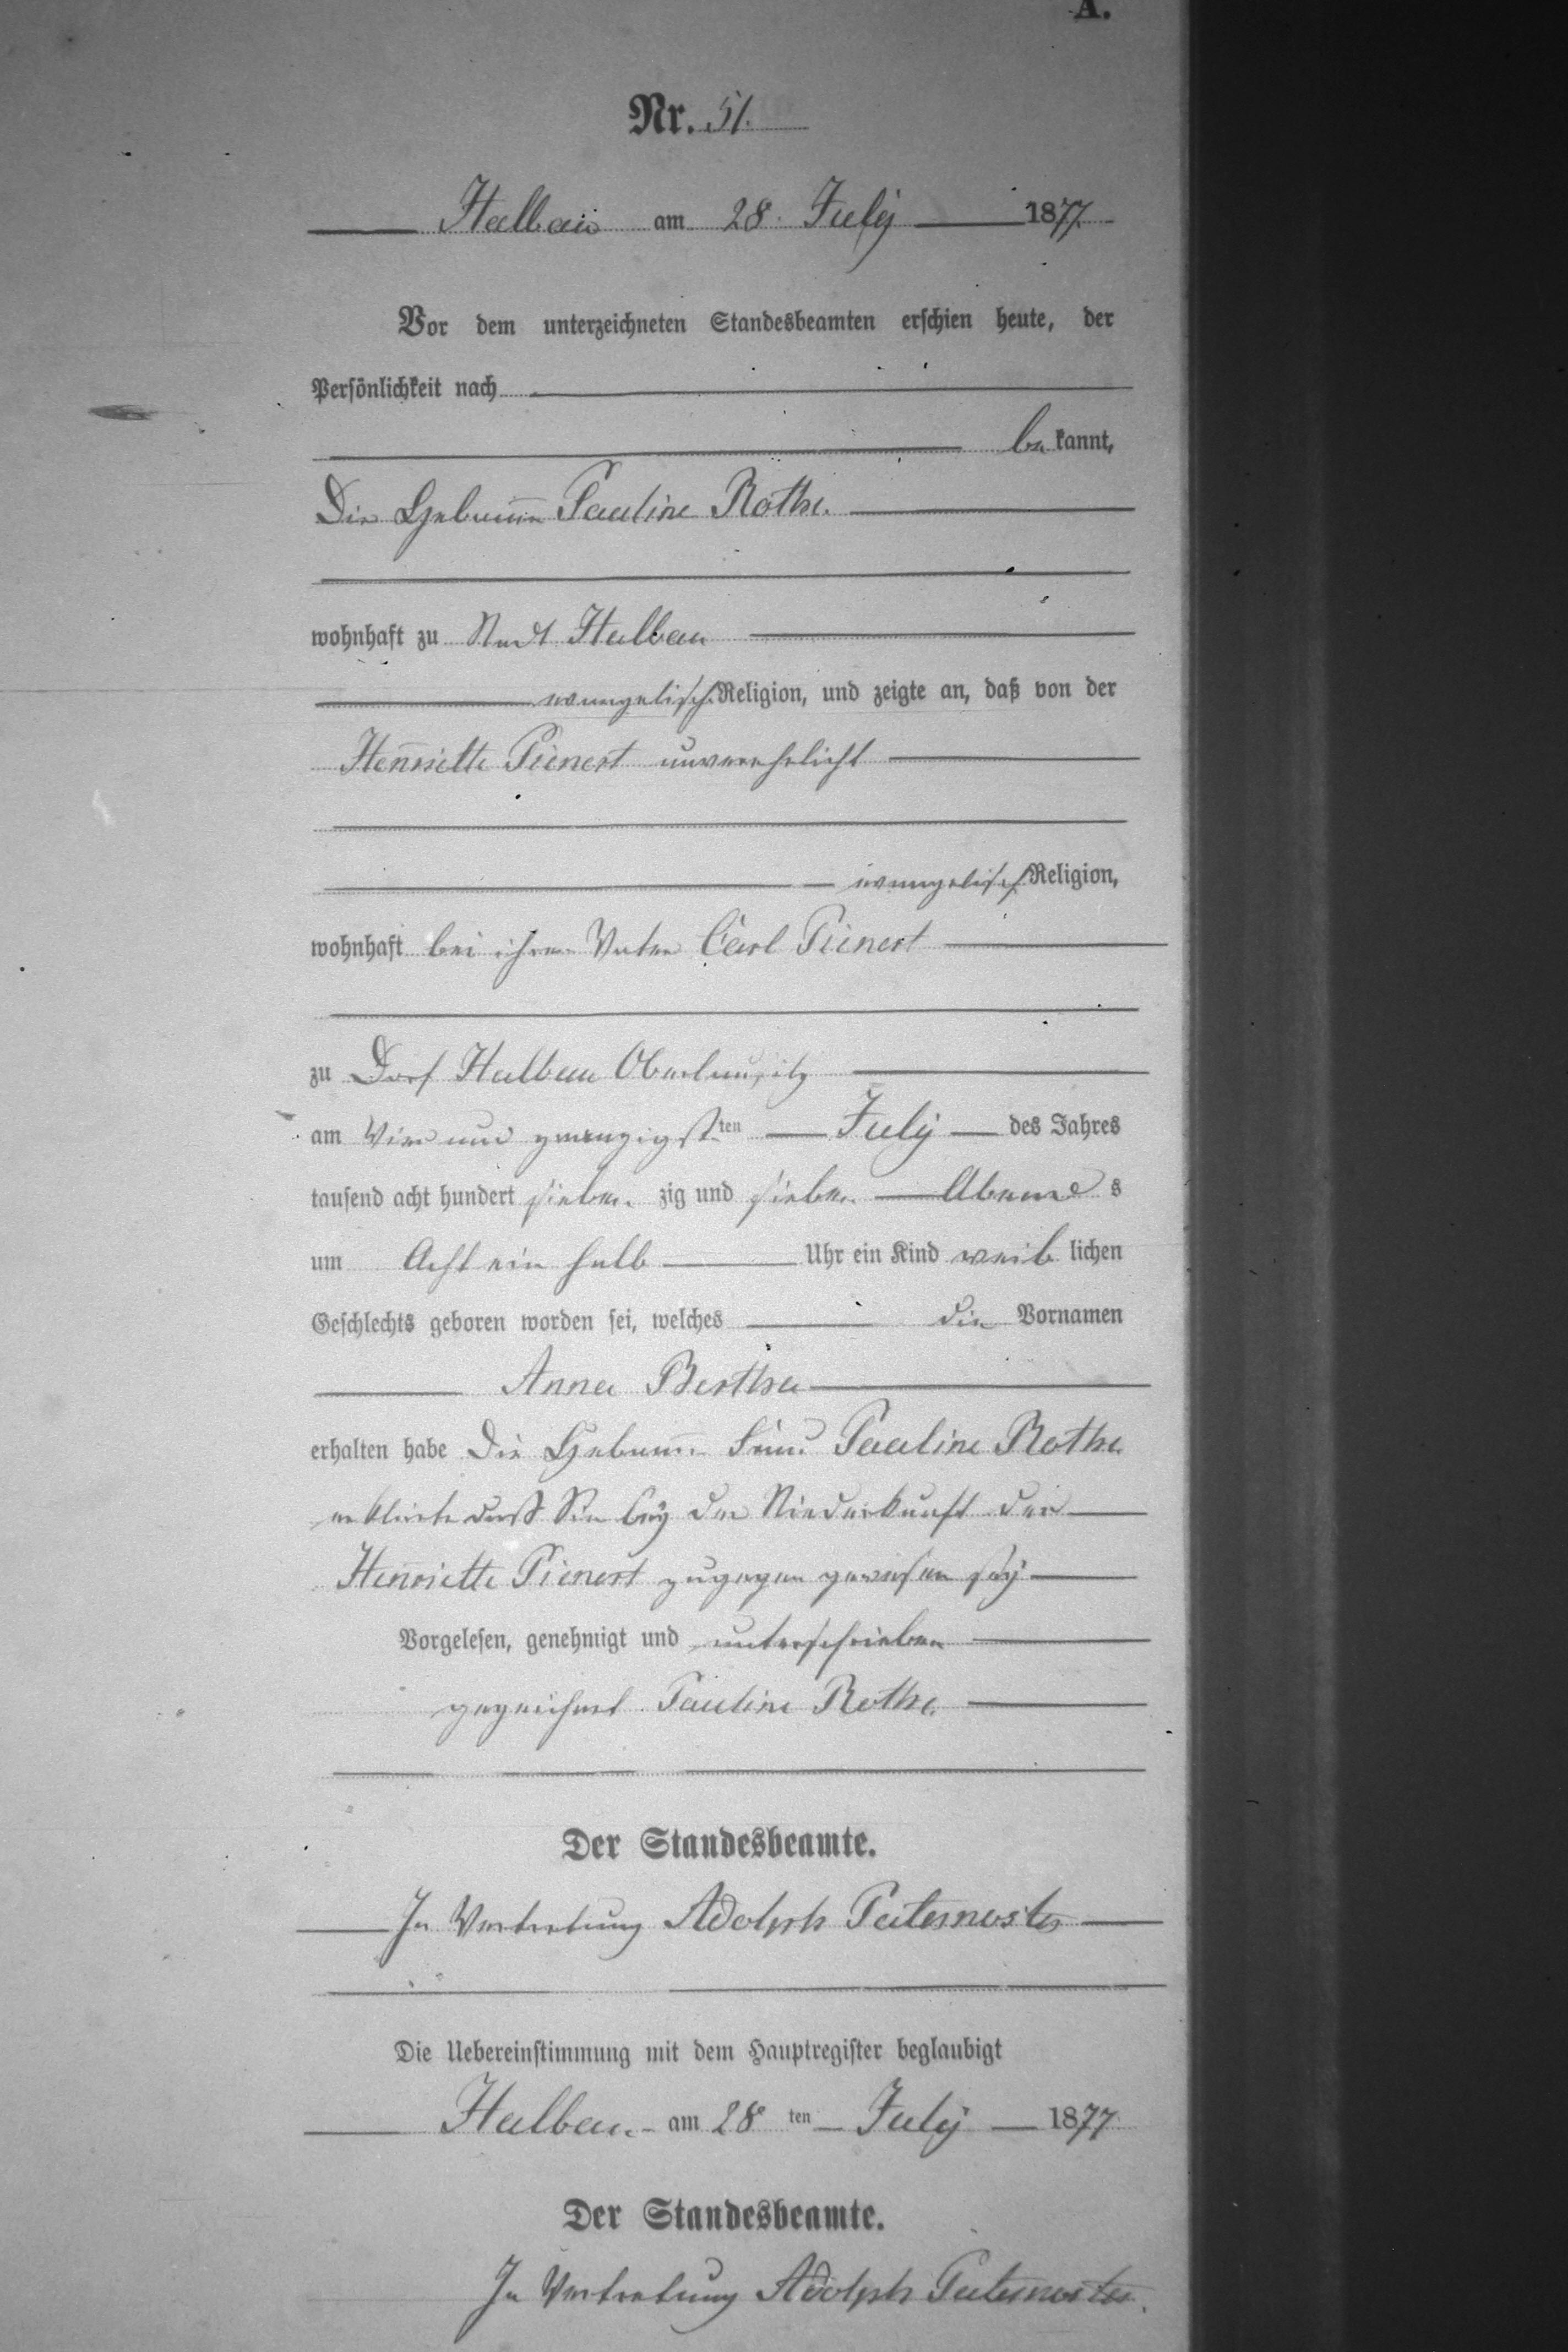 A.
Nr. 51.
Halbau am 28. July 1877.
Vor dem unterzeichneten Standesbeamten erschien heute, der
Persönlichkeit nach
be kannt,
Die Hebam̅e Pauline Rothe.
wohnhaft zu Stadt Halbau
evangelisch Religion, und zeigte an, daß von der
Henriette Pienert unverehelicht
evangelisch Religion,
wohnhaft bei ihrem Vater Carl Pienert
zu Dorf Halbau Oberlausitz
am Vier und zwanzigst ten July des Jahres
tausend acht hundert sieben zig und sieben Abend s
um Acht ein halb Uhr ein Kind weib lichen
Geschlechts geboren worden sei, welches die Vornamen
Anna Bertha
erhalten habe Die Hebam̅e Frau Pauline Rothe
erklärte daß Sie bey der Niederkunft der
Henriette Pienert zugegen gewesen sey
Vorgelesen, genehmigt und unterschrieben
gezeichnet Pauline Rothe.
Der Standesbeamte.
In Vertretung Adolph Paternoster
Die Uebereinstimmung mit dem Hauptregister beglaubigt
Halbau am 28 ten July 1877
Der Standesbeamte.
In Vertretung Adolph Paternoster.